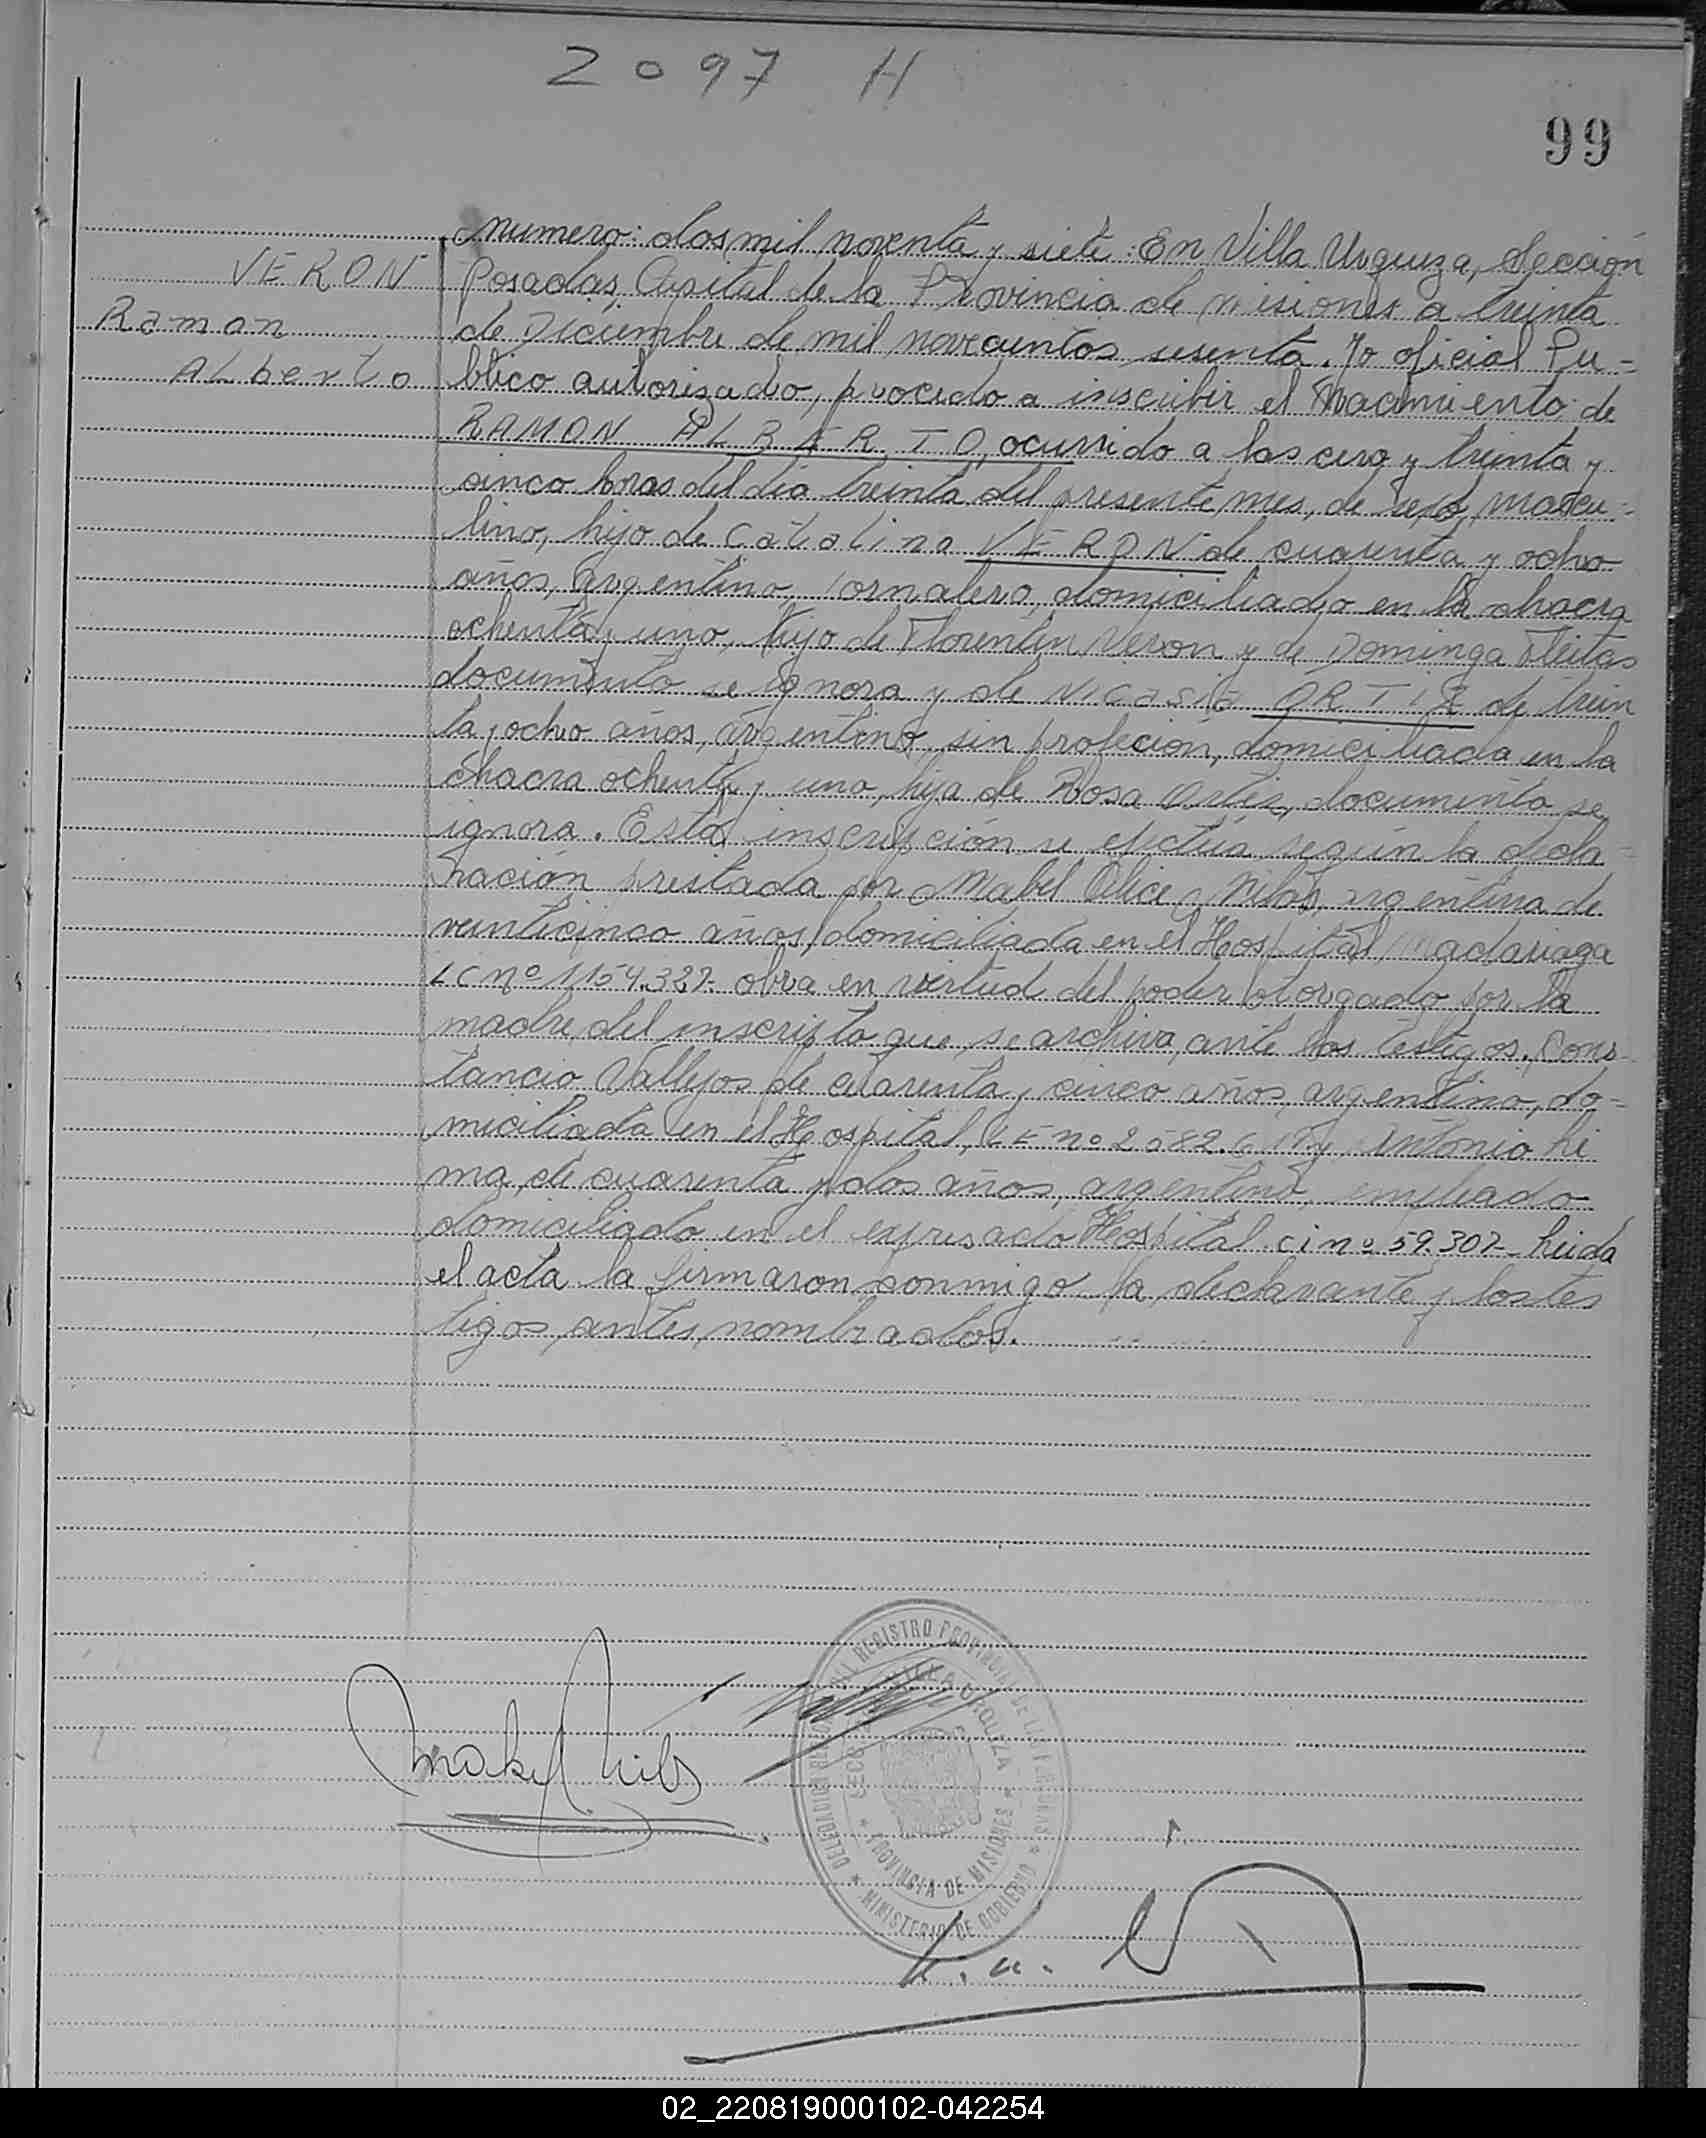 2097 H
99
VERON
Ramon
Alberto
Numero: dos mil noventa y siete: En Villa Urquiza, Sección
Posadas, Capital de la Provincia de misiones a treinta
de Diciembre de mil novecientos sesenta. Yo oficial Pu=
blico autorizado, procedo a inscribir el Nacimiento de
RAMON ALBERTO, ocurrido a las cero y treinta y
cinco horas del dia treinta del presente mes, de sexo mascu=
lino, hijo de Catalino VERON de cuarenta y ocho
años, argentino, jornalero, domiciliado en la chacra
ochenta y uno, hijo de Florentin Veron y de Dominga Fleitas
documento se ignora y de Nicasia ORTIZ de trein
ta y ocho años, argentina, sin profecion, domiciliada en la
Chacra ochenta y uno, hija de Rosa Ortiz, documento se
ignora. Esta inscripción se efectúa según la decla=
ración prestada por Mabel Alice Nilos, argentina de
veinticinco años, domiciliada en el Hospital Madariaga
LC nº 1154.327- obra en virtud del poder otorgado por la
madre del inscripto que se archiva, ante los testigos, Cons-
tancio Vallejos de cuarenta y cinco años, argentino, do=
miciliada en el Hospital, LE nº 2582.6 y Antonio Li
ma, de cuarenta y dos años, argentino, empleado
domiciliado en el expresado Hospital. ci nº 59.307- Leida
el acta la firmaron conmigo la declarante y los tes
tigos antes nombrados.
REGISTRO PROVINCIAL DE LAS PERSONAS
VILLA URQUIZA
PROVINCIA DE MISIONES
MINISTERIO DE GOBIERNO
02_220819000102-042254